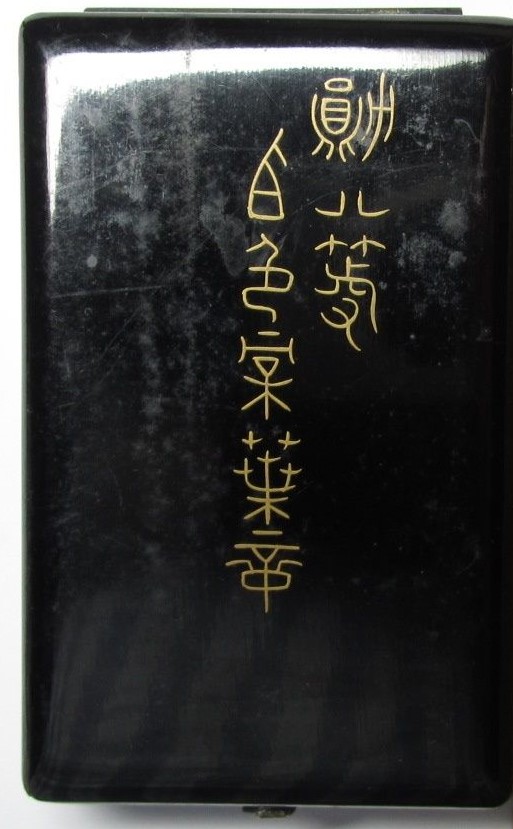 勛八等
白色桐葉章